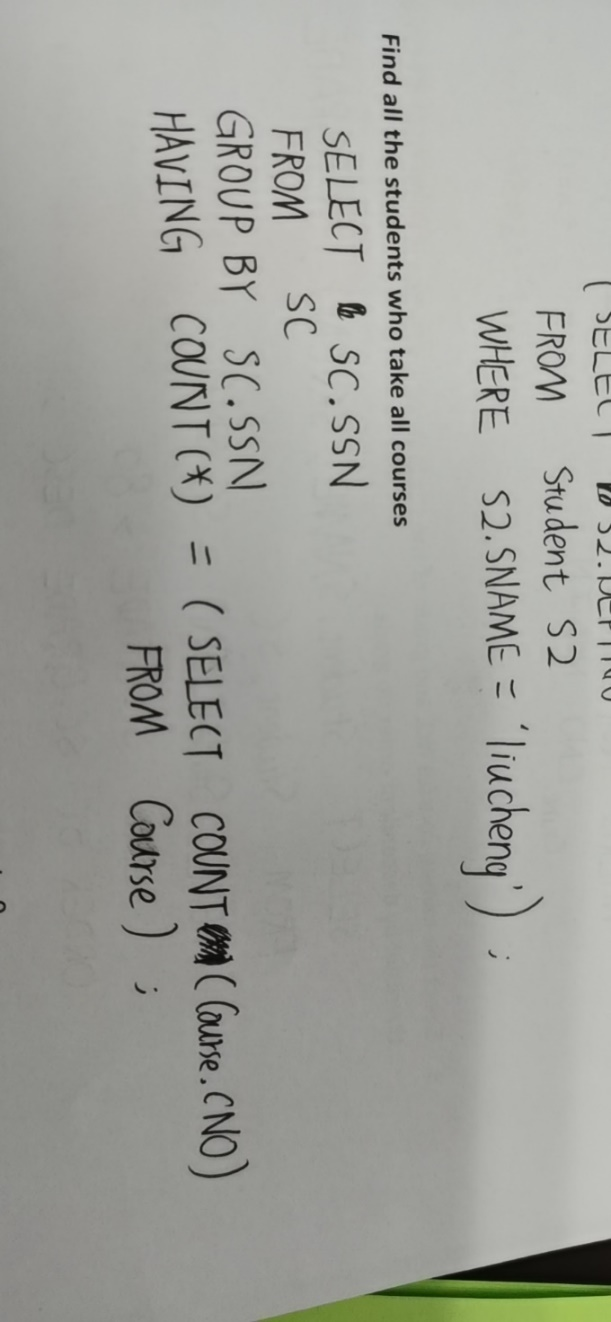 (SELECT S2.DEPTNO
FROM Student S2
WHERE S2.SNAME = 'liucheng') ;
Find all the students who take all courses
SELECT SC.SSN
FROM SC
GROUP BY SC.SSN
HAVING COUNT(*) = (SELECT COUNT (Course.CNO)
FROM Course) ;